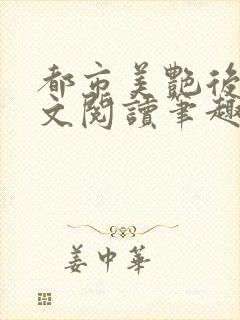 都市美艷後
文閱讀筆趣
姜中華